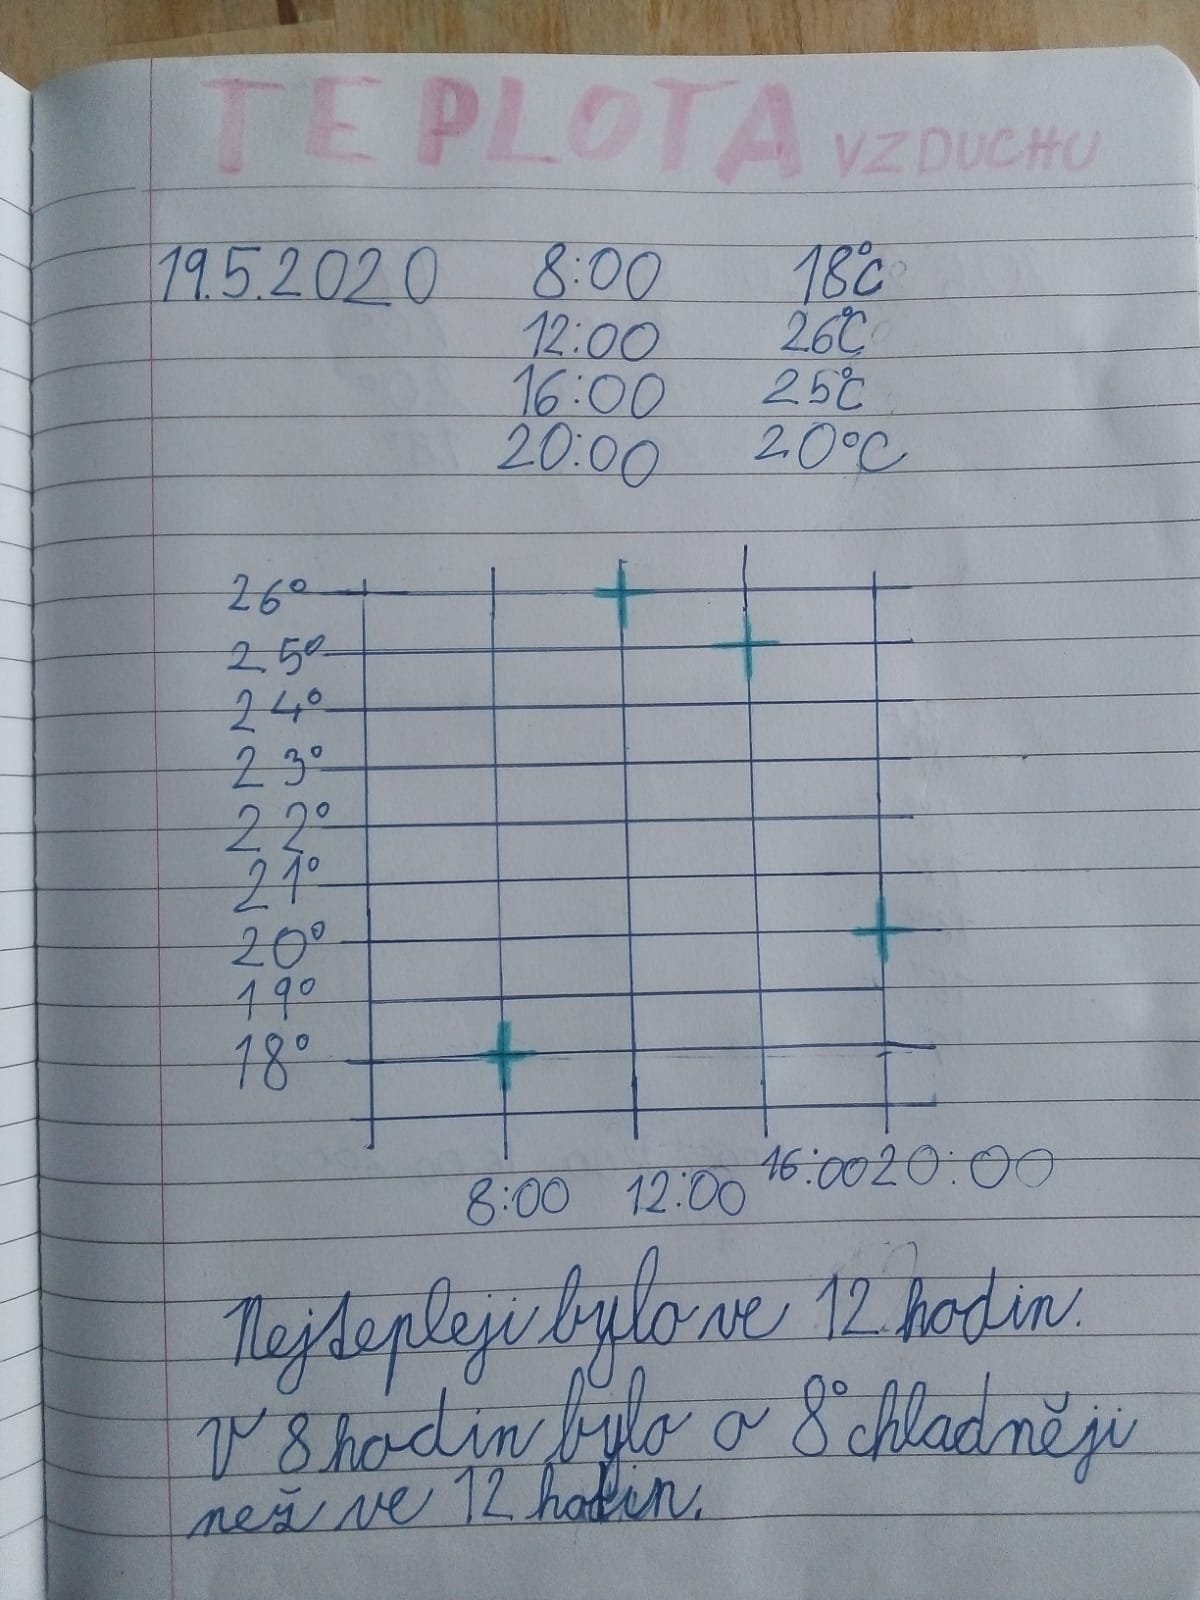 TEPLOTA VZDUCHU
19.5.2020 8:00 18°C
12:00 26°C
16:00 25°C
20:00 20°C
26°
25°
24°
23°
22°
21°
20°
19°
18°
8:00 12:00 16:00 20:00
Nejtepleji bylo ve 12 hodin.
V 8 hodin bylo o 8° chladněji
než ve 12 hodin.